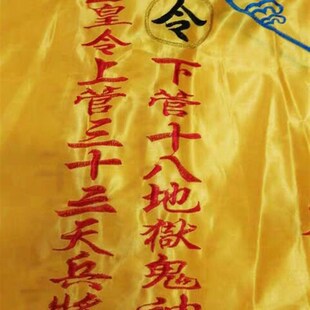 令
下管十八地獄鬼神
皇令上管三十三天兵將